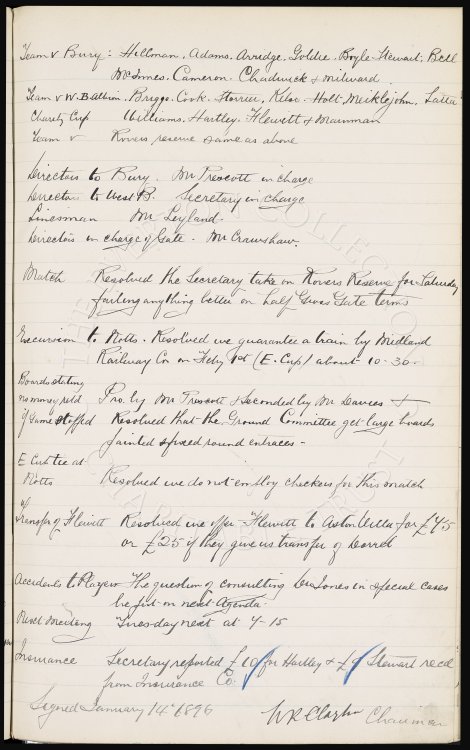 Team v Bury : Hillman, Adams, Arridge, Goldie, Boyle, Stewart, Bell
McInnes, Cameron, Chadwick & Milward
Team v W. Bromwich Briggs, Cook, Storrier, Kelso, Holt, Meiklejohn, Latta
Charity Cup Williams, Hartley, Flewitt &
Team v Rovers reserve same as above
Directors to Bury. Mr Prescott in charge
Directors to West B. Secretary in charge
Linesman Mr Leyland
Directors in charge of Gate. Mr Crawshaw.
Match Resolved the Secretary take on Rovers Reserve for Saturday
failing anything better on half Gross Gate terms
Excursion to Notts. Resolved we guarantee a train by Midland
Railway Co on Feby 1st (E. Cup) about 10-30-
Boards stating
no money retd Pro. by Mr Prescott & Seconded by Mr Davies
if Game stopped Resolved that the Ground Committee get large boards
painted & fixed round entraces -
E Cup tie at
Notts Resolved we do not employ checkers for this match
Transfer of Flewitt Resolved we offer Flewitt to Aston Villa for £75
or £25 if they give us transfer of Dorrel
Accidents to Players The question of consulting Dr Jones in special cases
be put on next Agenda.
Next Meeting Tuesday next at 7-15
Insurance Secretary reported £10 for Hartley & Stewart recd
from Insurance Co.
Signed January 14th 1896 W R Clayton Chairman
THE EVERTON COLLECTION